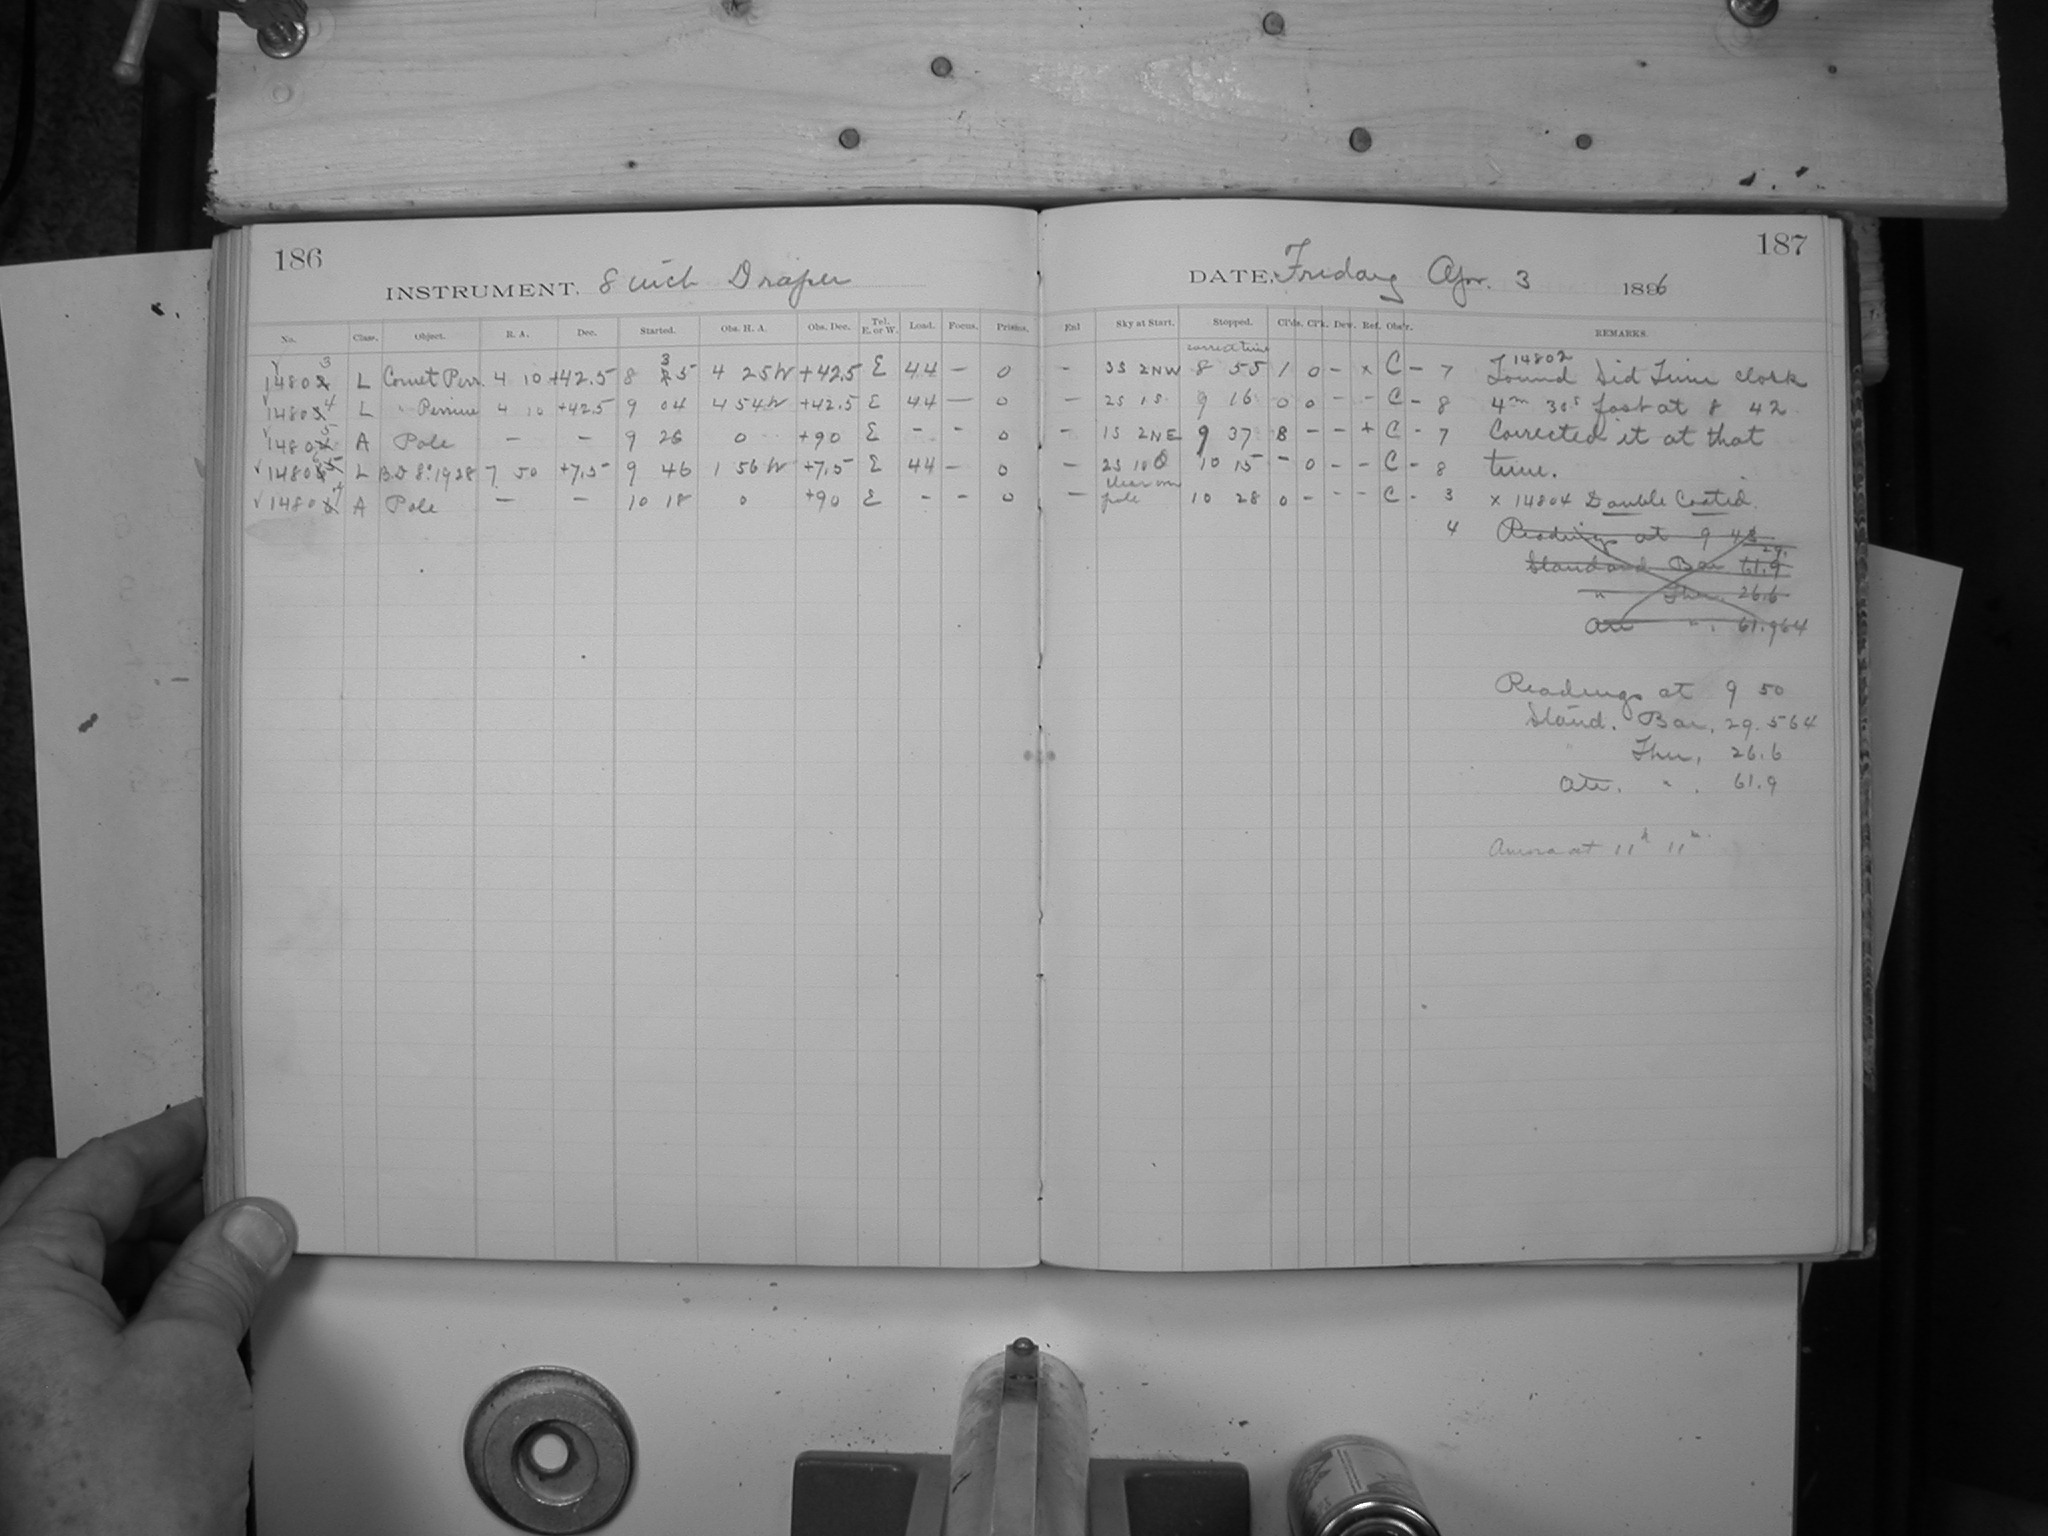 186
INSTRUMENT. 8 inch Draper
No. Class. Object. R. A. Dec. Started. Obs. H. A. Obs. Dec. Tel. E. or W. Load. Focus. Prisms.
14803 L Comet Perr. 4 10 +42.5 8 35 4 25W +42.5 E 44 – 0
14804 L " Perrine 4 10 +42.5 9 04 4 54W +42.5 E 44 – 0
14805 A Pole – – 9 26 0 +90 E – – 0
14806 L B.D 8°.1928 7 50 +7.5 9 46 1 56W +7.5 E 44 – 0
14807 A Pole – – 10 18 0 +90 E – – 0
187
DATE, Friday Apr. 3 1896
Enl Sky at Start. Stopped. Cl'ds. Cl'k. Dew. Ref. Obs'r. REMARKS.
correct time
– 3S 2NW 8 55 1 0 – x C – 7
– 2S 1S 9 16 0 0 – – C – 8
– 1S 2NE 9 37 8 – – + C – 7
– 2S 10 10 15 – 0 – – C – 8
– clear on pole 10 28 0 – – – C – 3
4
14802
Found Sid Time clock
4m 30s fast at 8 42
Corrected it at that
time.
x 14804 Double Coated.
Readings at 9 48
29.
Standard Bar 61.9
" Ther. 26.6
Att " . 61.964
Readings at 9 50
Stand. Bar. 29.564
" Ther, 26.6
Att. " . 61.9
Aurora at 11h 11m.